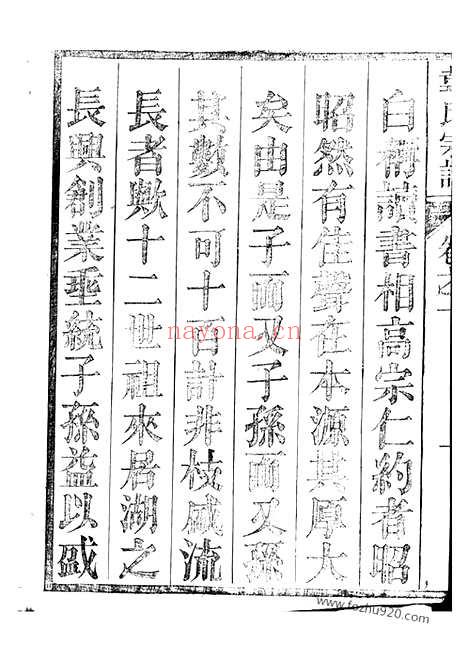 氏宗譜 卷之一
白 讀書相高宗仁約者昭
昭然有佳聲在本源其厚大
矣由是子而又子孫而又孫
其數不可十百計非枝咸流
長者歟十二世祖來居湖之
長興創業垂統子孫益以盛
nayona.cn
www.fozhu920.com